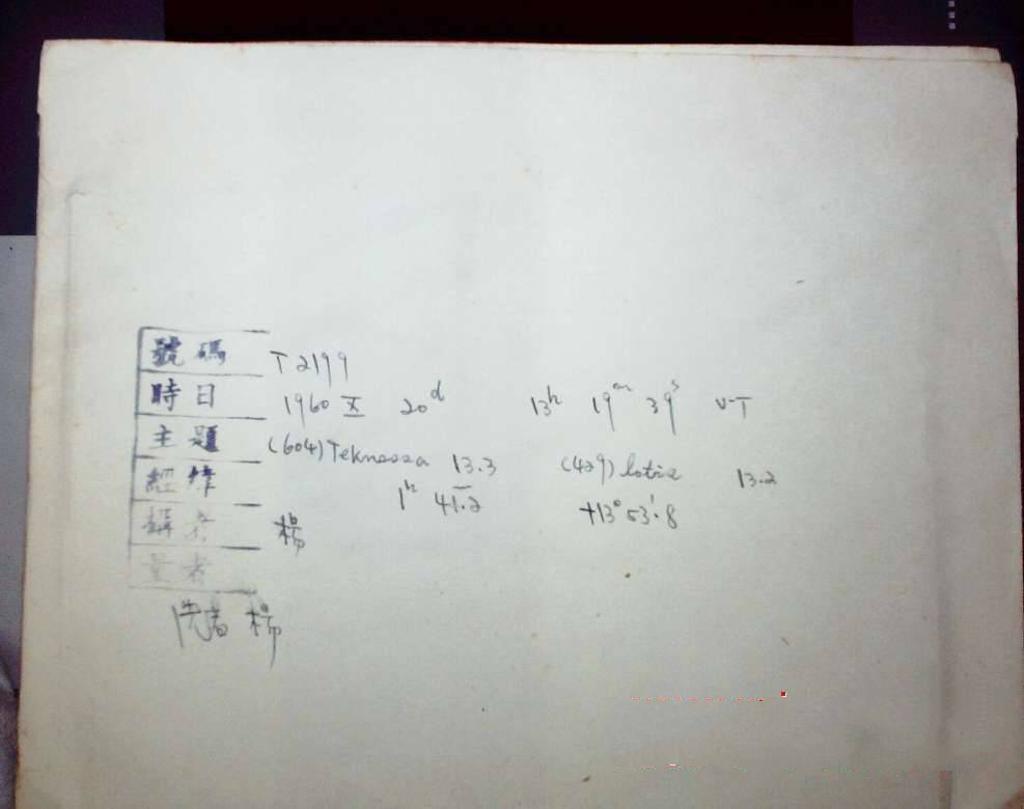 號碼 T 2199
時日 1960 X 20d 13h 19m 39s U-T
主題 (604) Tekmessa 13.3 (429) Lotis 13.2
經緯 1h 41.2 +13° 53'.8
攝者 楊
量者
洗者 楊